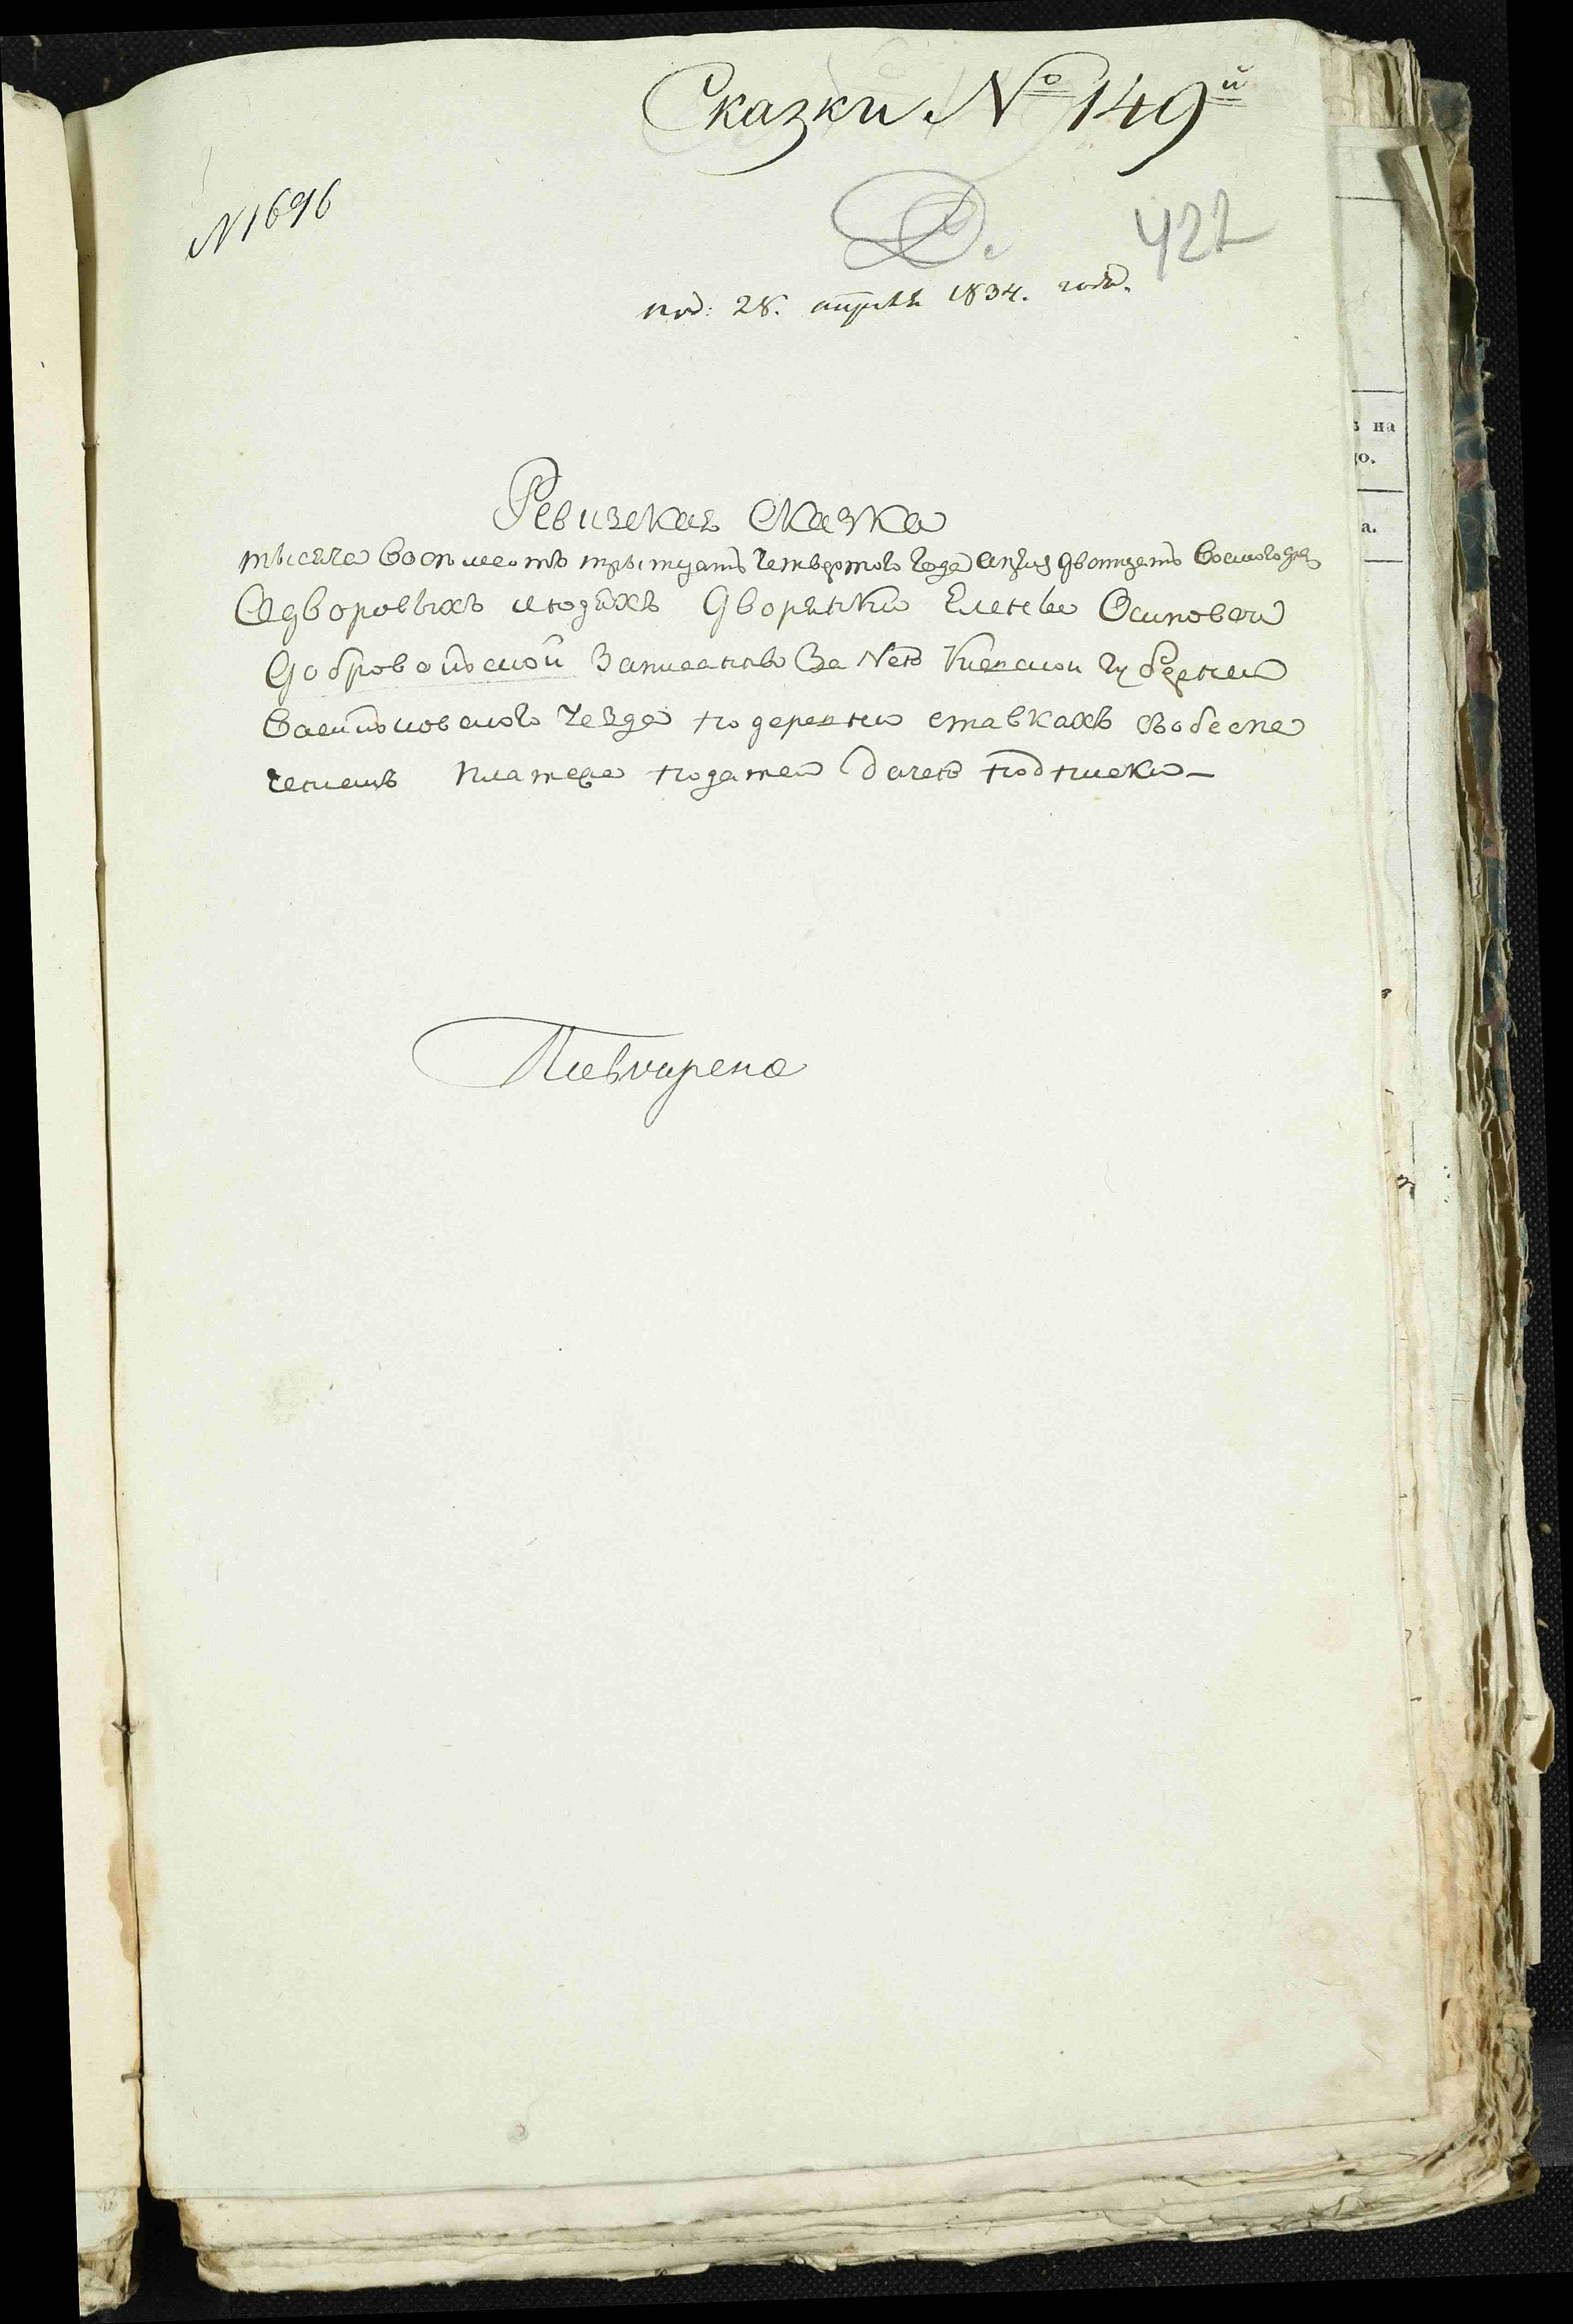 Сказки № 149й
N 1696
422
под: 28. апреля 1834. года.
на
о.
Ревизская сказка
тысяча восемсотъ тритцать четвертого года апреля дватцать восмого дня
а.
О дворовыхъ людяхъ дворянки Елены Осиповой
Добровольской записанныхъ за Нею Киевской губернии
Васильковского уезда подеревни ставкахъ вобеспе
чениемъ платежа податей дачею подписки —
Повѣрена